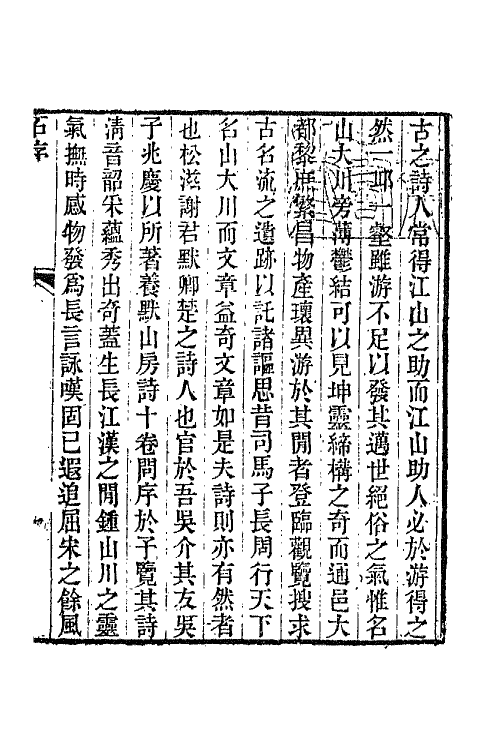 古之詩人常得江山之助而江山助人必於游得之
然一邱一壑雖游不足以發其邁世絕俗之氣惟名
山大川旁薄鬱結可以見坤靈締構之奇而通邑大
都黎庶繁昌物產瓌異游於其閒者登臨觀覽搜求
古名流之遺跡以託諸謳思昔司馬子長周行天下
名山大川而文章益奇文章如是夫詩則亦有然者
也松滋謝君默卿楚之詩人也官於吾吳介其友吳
子兆慶以所著養默山房詩十卷問序於予覽其詩
淸音韶采蘊秀出奇蓋生長江漢之閒鍾山川之靈
氣撫時感物發爲長言詠嘆固已遐追屈宋之餘風